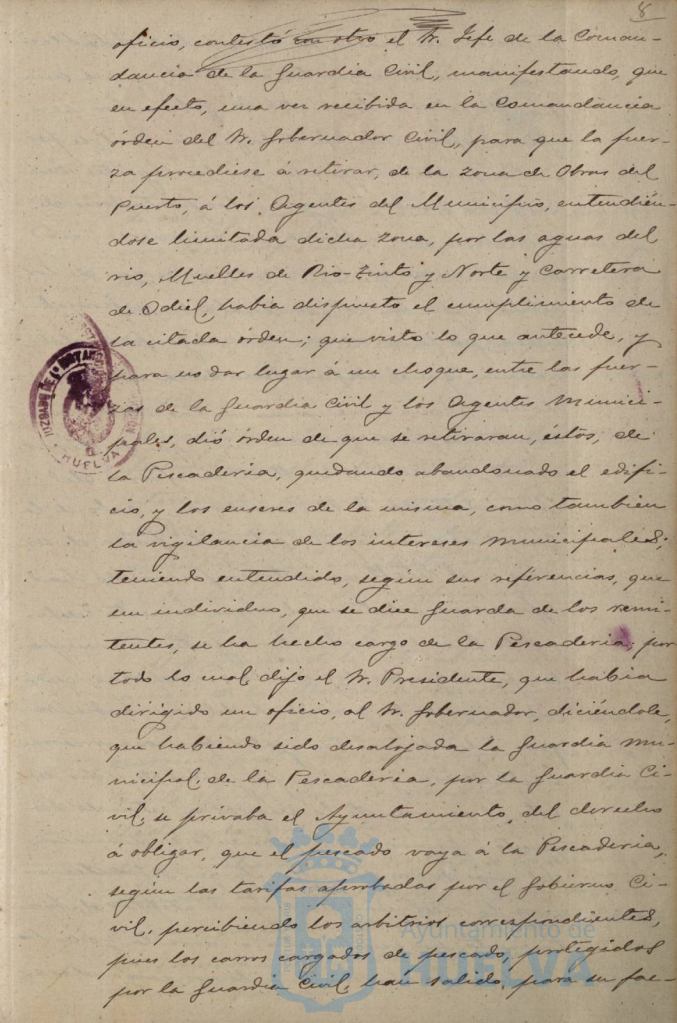 8
oficio, contestó con otro el Sr. Jefe de la Coman-
dancia de la Guardia Civil, manifestando, que
en efecto, una vez recibida en la Comandancia
órden del Sr. Gobernador Civil, para que la fuer-
za procediese á retirar, de la zona de Obras del
Puerto, á los Agentes del Municipio, entendién-
dose limitada dicha zona, por las aguas del
rio, Muelles de Rio-Tinto y Norte y Carretera
de Odiel, habia dispuesto el cumplimiento de
la citada órden; que visto lo que antecede, y
para no dar lugar á un choque, entre las fuer-
zas de la Guardia Civil y los Agentes Munici-
pales, dió órden de que se retiraran, éstos, de
la Pescaderia, quedando abandonado el edifi-
cio, y los enseres de la misma, como tambien
la vigilancia de los intereses Municipales;
teniendo entendido, según sus referencias, que
un individuo, que se dice Guarda de los remi-
tentes, se ha hecho cargo de la Pescaderia; por
todo lo cual, dijo el Sr. Presidente, que habia
dirigido un oficio, al Sr. Gobernador, diciéndole,
que habiendo sido desalojada la Guardia Mu-
nicipal, de la Pescaderia, por la Guardia Ci-
vil, se privaba el Ayuntamiento, del derecho
á obligar, que el pescado vaya á la Pescaderia,
según las tarifas aprobadas por el Gobierno Ci-
vil, percibiendo los arbitrios correspondientes,
pues los carros cargados de pescado, protegidos
por la Guardia Civil, han salido, para su fac-
HUELVA
Ayuntamiento de
HUELVA